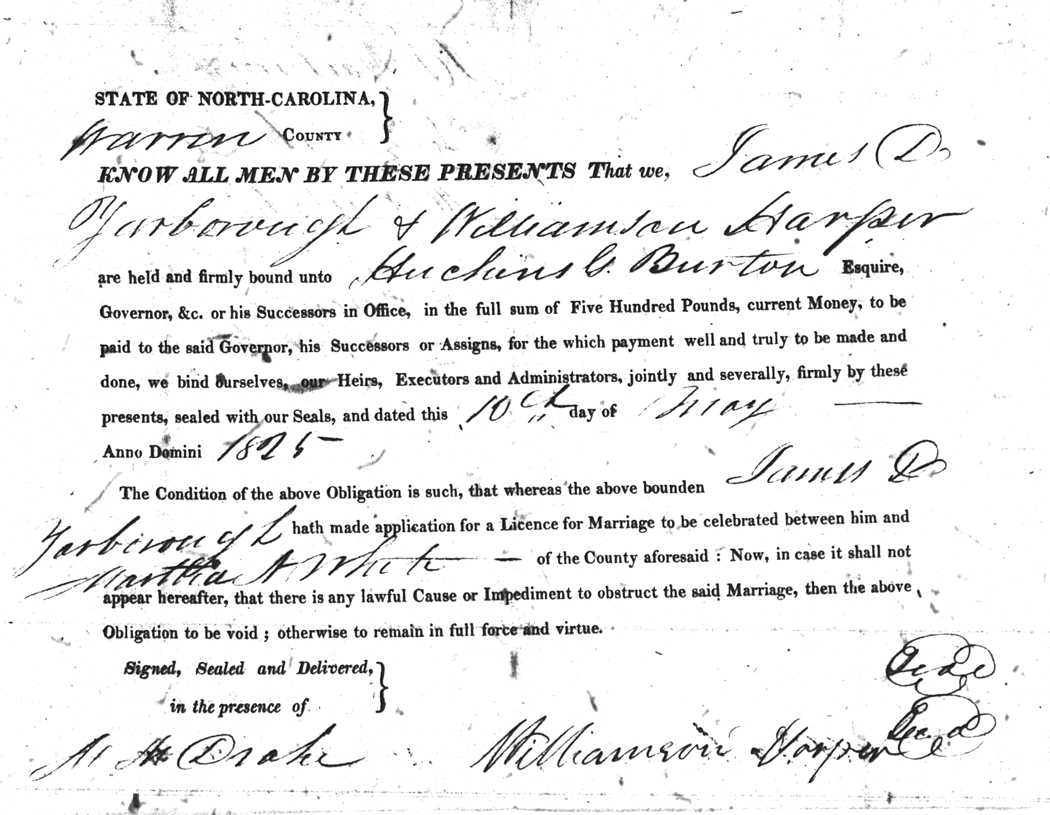 STATE OF NORTH-CAROLINA,
Warren COUNTY
KNOW ALL MEN BY THESE PRESENTS That we, James D
Yarborough & Williamson Harper
are held and firmly bound unto Huchins G. Burton Esquire,
Governor, &c. or his Successors in Office, in the full sum of Five Hundred Pounds, current Money, to be
paid to the said Governor, his Successors or Assigns, for the which payment well and truly to be made and
done, we bind ourselves, our Heirs, Executors and Administrators, jointly and severally, firmly by these
presents, sealed with our Seals, and dated this 10th day of May
Anno Domini 1825
The Condition of the above Obligation is such, that whereas the above bounden James D
Yarborough hath made application for a Licence for Marriage to be celebrated between him and
Martha A White — of the County aforesaid : Now, in case it shall not
appear hereafter, that there is any lawful Cause or Impediment to obstruct the said Marriage, then the above
Obligation to be void ; otherwise to remain in full force and virtue.
Signed, Sealed and Delivered,
in the presence of
Seal
Drake Williamson Harper Seal